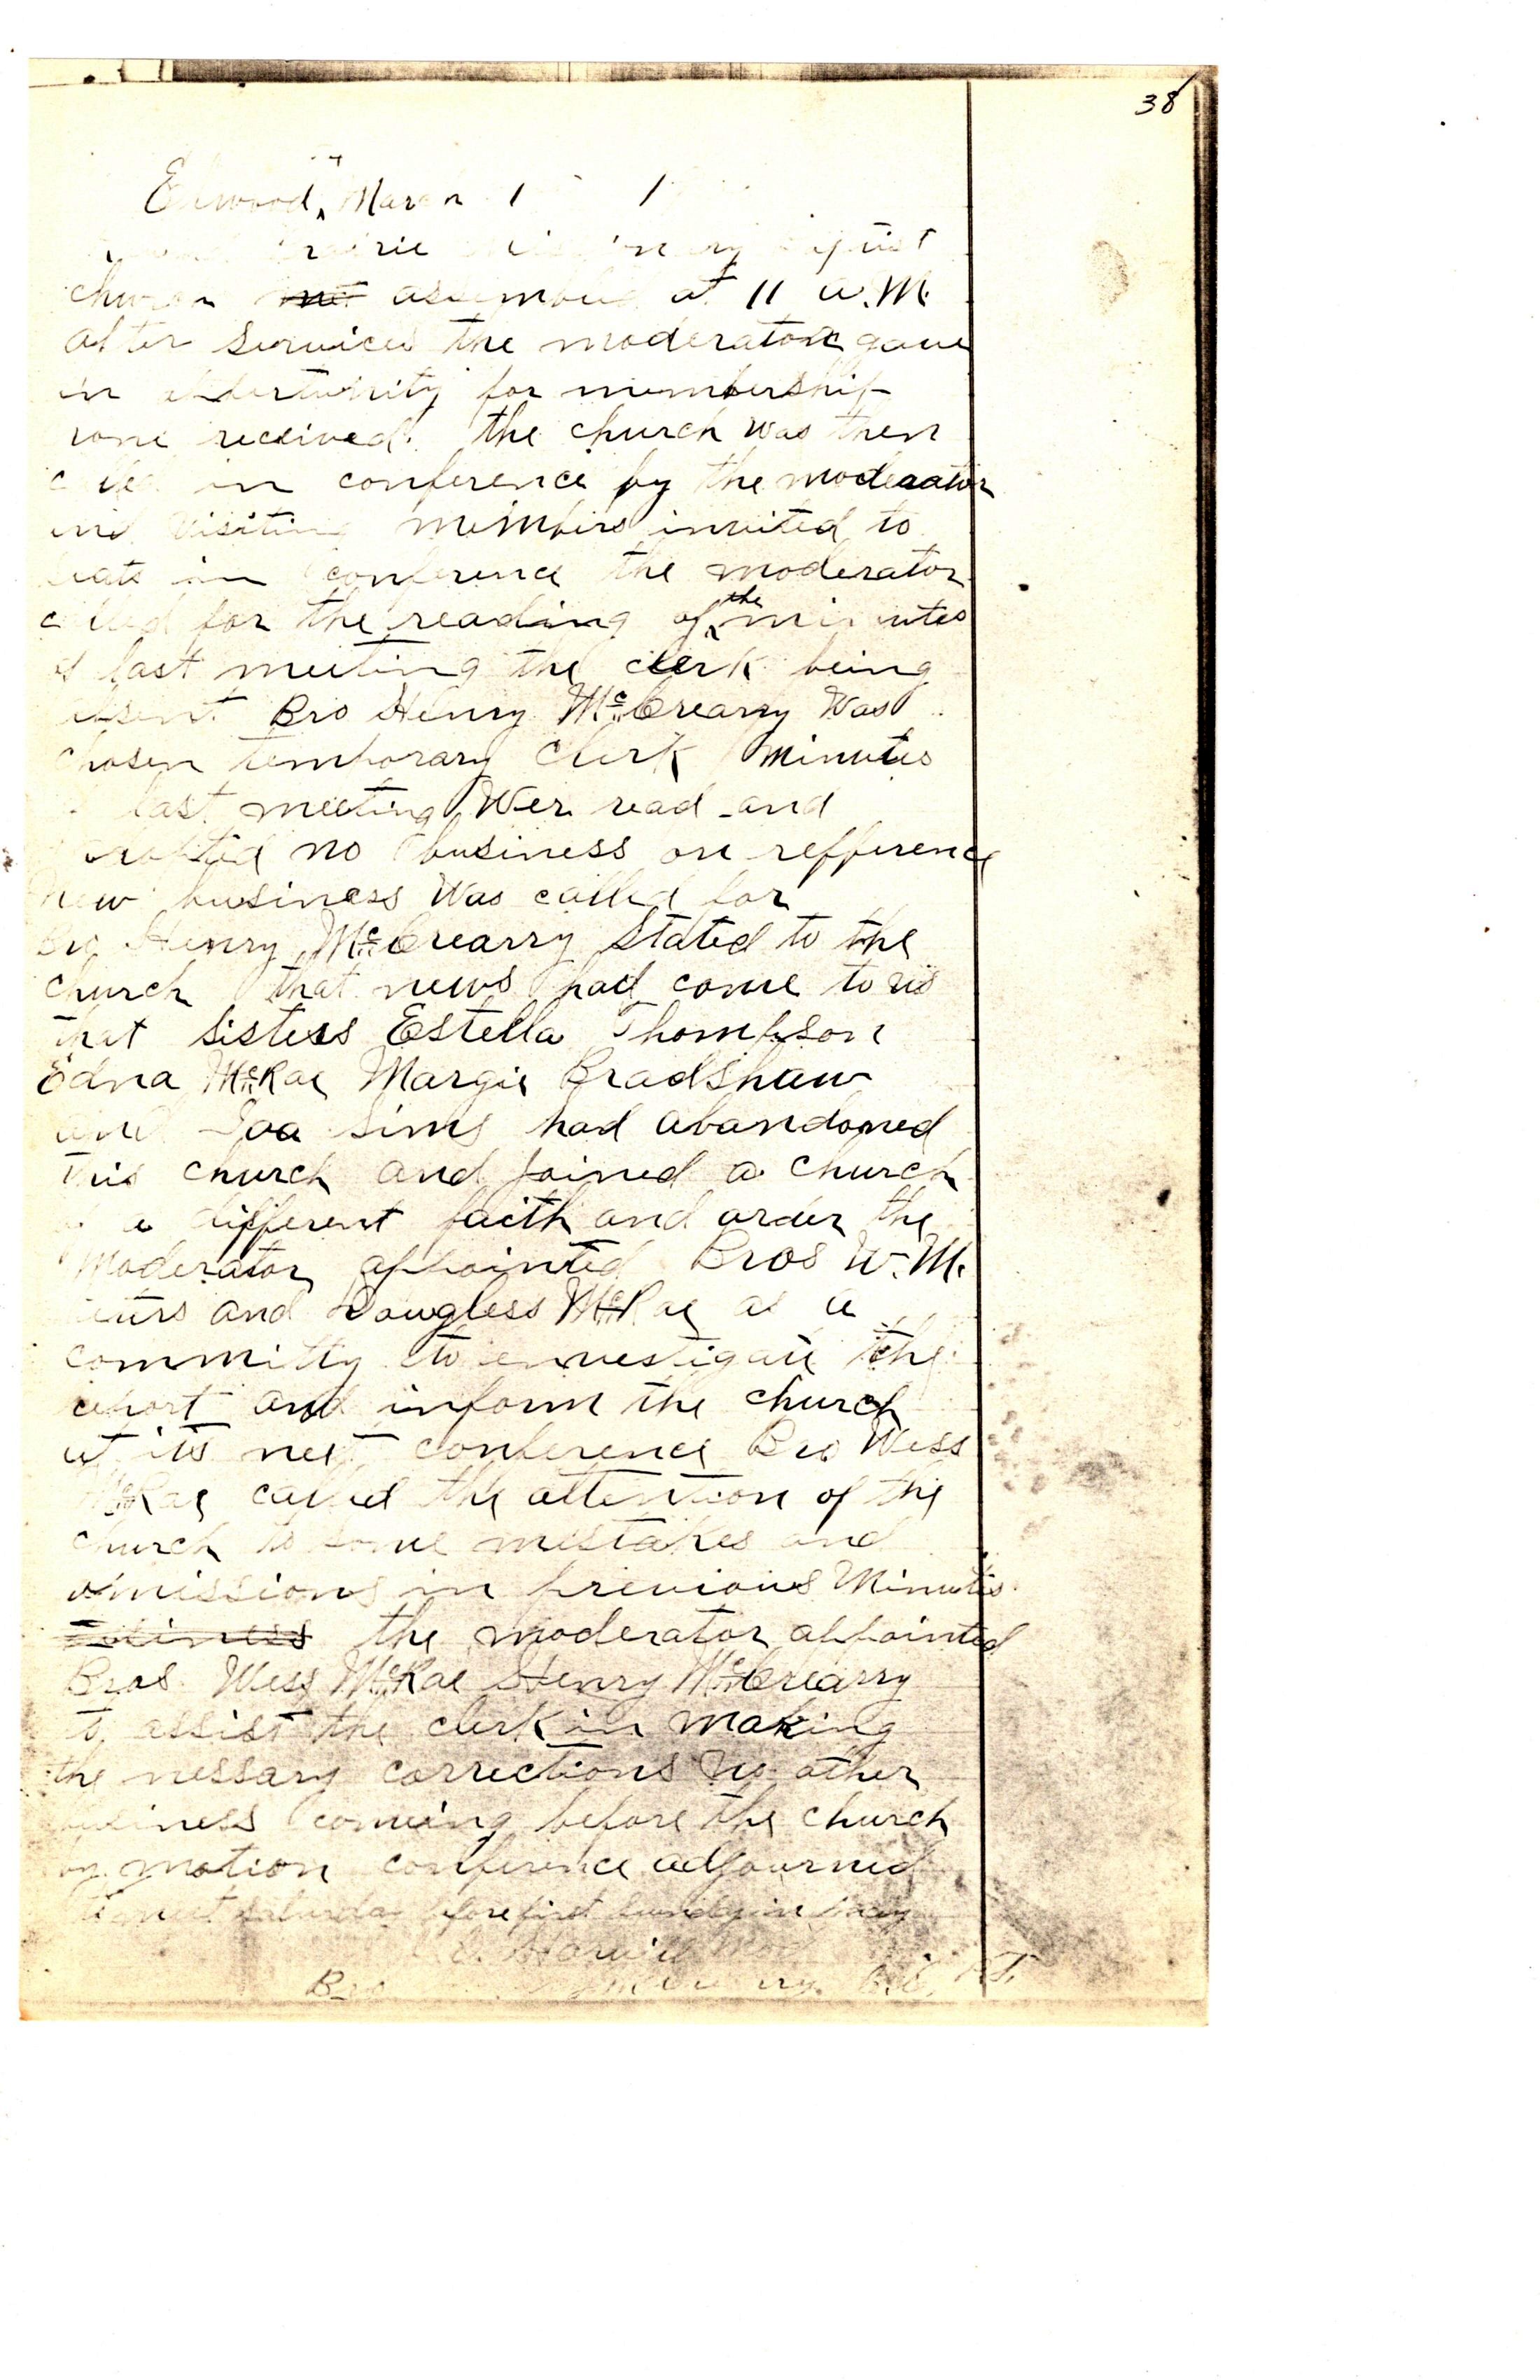 38
Elwood, March 1 1
church assembled at 11 a.M.
after services the moderator gave
an oppertunity for membership
none received. the church was then
called in conference by the moderator
and visiting members invited to
seats in conference the moderator
called for the reading of the minutes
of last meeting the clerk being
absent Bro Henry McCrearry Was
chosen temporary Clerk Minutes
last meeting Wer read and
adopted no business on refference
New business Was called for
Bro Henry McCrearry Stated to the
church that news had come to us
that Sisters Estella Thompson
Edna McRae Margie Bradshaw
and Sims had abandoned
this church and joined a church
of a different faith and order the
Moderator appointed Bros W. M.
and Dougless McRae as a
committy to envestigate the
report and inform the church
at its next conference Bro Wess
McRae called the attention of the
church to some mistakes and
omissions in previous Minutes
the moderator appointed
Bros. Wess McRae Henry McCrearry
to assist the clerk in making
the nessary corrections no other
business coming before the church
on motion conference adjourned
to meet saturday before first sunday in
Mod
Bro